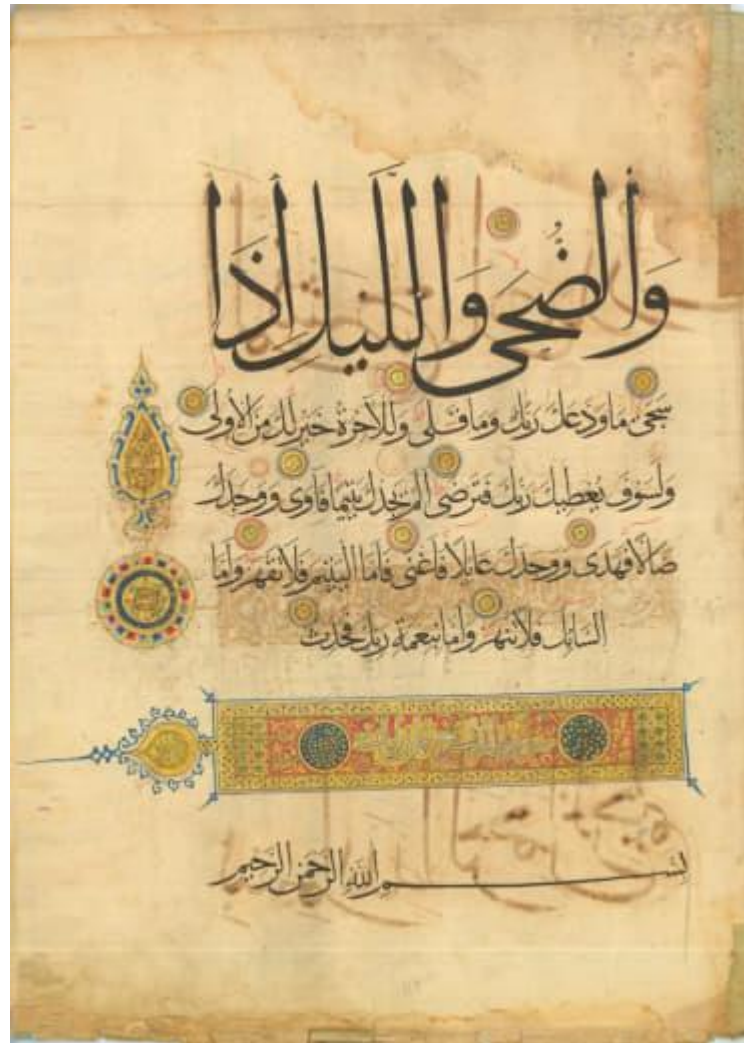 وَالضُّحَى وَاللَّيلِ اِذَا
سجى ما ودعك ربك وما قلى وللآخرة خير لك من الاولى
ولسوف يعطيك ربك فترضى الم يجدك يتيما فاوى ووجدك
ضالا فهدى ووجدك عائلا فاغنى فاما اليتيم فلا تقهر واما
السائل فلا تنهر واما بنعمة ربك فحدث
بسم الله الرحمن الرحيم